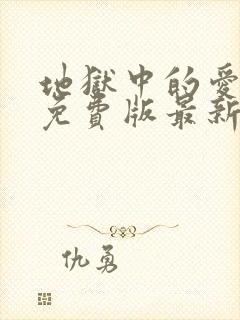 地獄中的愛
免費版最新
仇勇